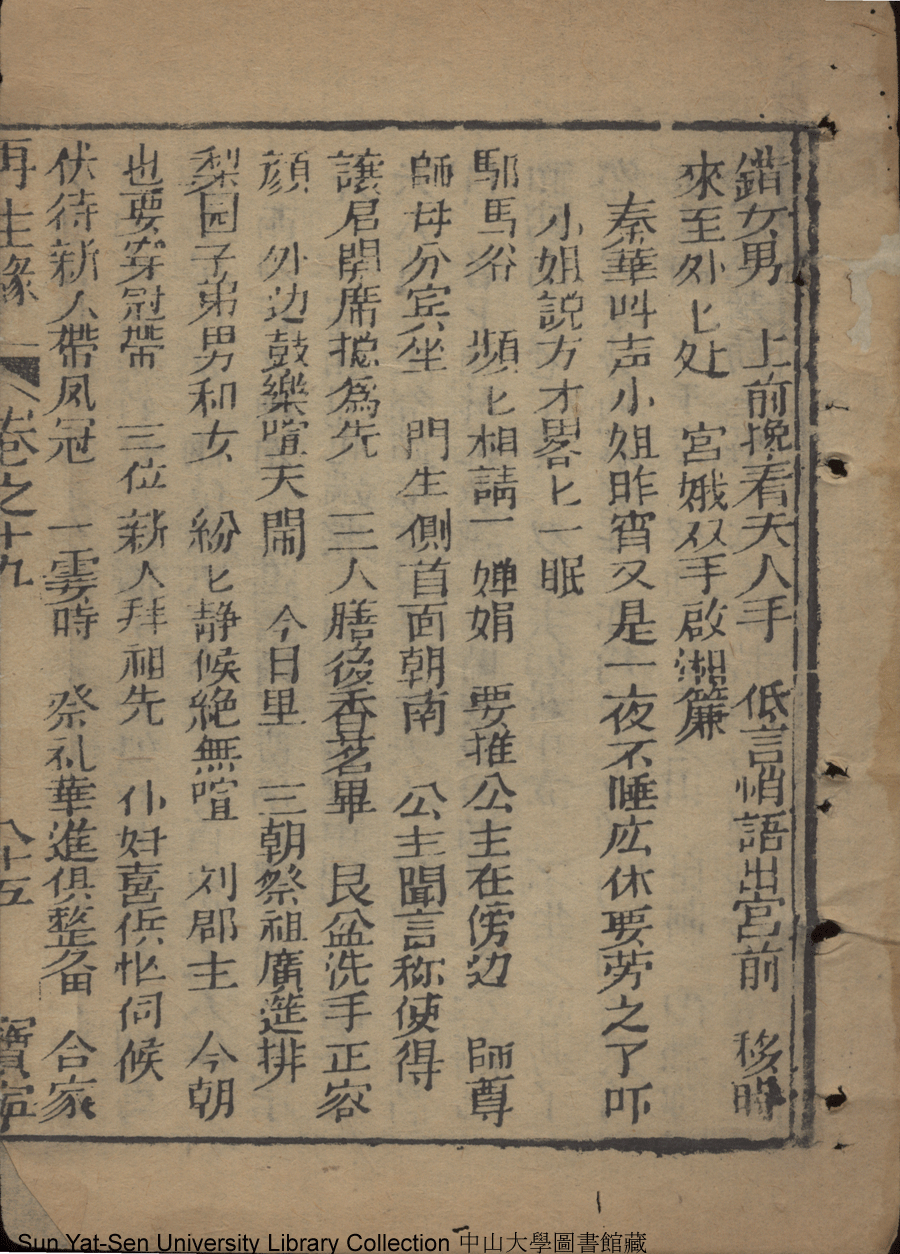 錯女男　上前挽看夫人手　低言悄語出宮前　移時
來至外匕处　宮娥双手啟湘簾
秦華叫声小姐昨宵又是一夜不睡広休要劳之了吓
小姐説方才畧匕一眠
駙馬爷　頻匕相請一嬋娟　要推公主在傍边　師尊
師母分宾坐　門生側首面朝南　公主聞言称使得
讓君開席揔為先　三人膳後香茗畢　艮盆洗手正容
顔　外边鼓樂喧天閙　今日里　三朝祭祖廣筵排
梨园子弟男和女　紛匕静候絶無喧　刘郡主　今朝
也要穿冠帶　三位新人拜祖先　仆妇喜俱忙伺候
伏待新人帶凤冠　一霎時　祭礼華進俱整备　合家
再生緣　卷之十九　八十五
Sun Yat-Sen University Library Collection 中山大學圖書館藏